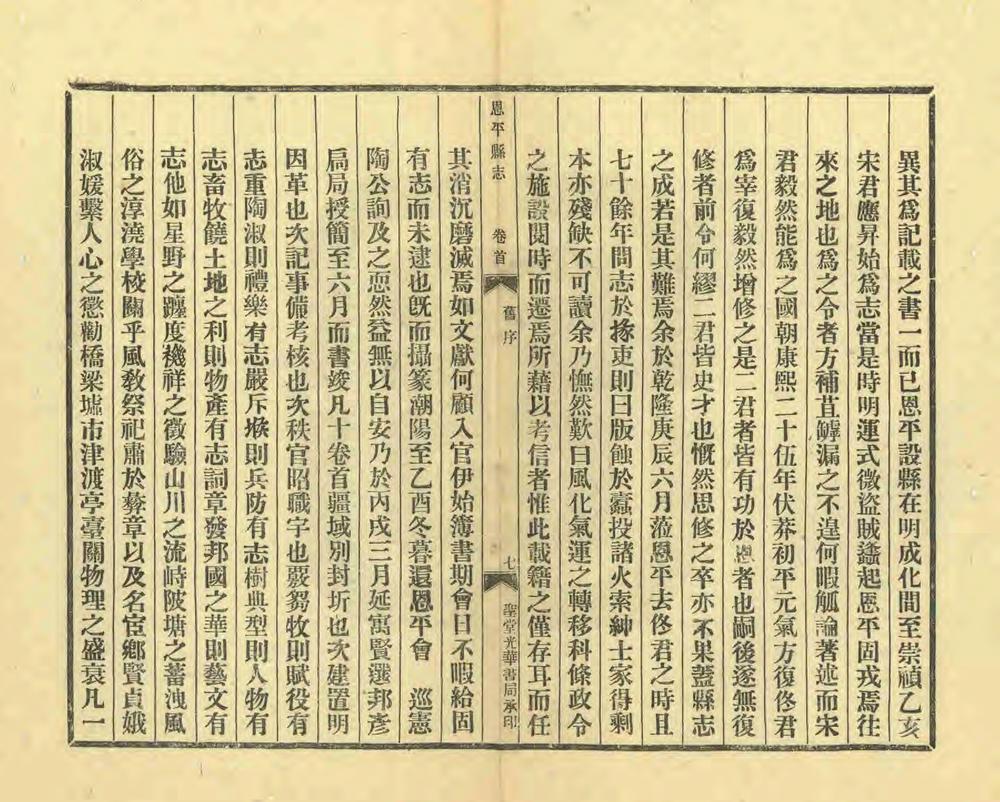 異其爲記載之書一而已恩平設縣在明成化間至崇禎乙亥
宋君應昇始爲志當是時明運式微盜賊蠭起恩平固戎焉往
來之地也爲之令者方補苴罅漏之不遑何暇觚論著述而宋
君毅然能爲之國朝康熙二十伍年伏莽初平元氣方復佟君
爲宰復毅然增修之是二君者皆有功於恩者也嗣後遂無復
修者前令何繆二君皆史才也慨然思修之卒亦不果蓋縣志
之成若是其難焉余於乾隆庚辰六月蒞恩平去佟君之時且
七十餘年問志於掾吏則曰版蝕於蠹投諸火索紳士家得剩
本亦殘缺不可讀余乃憮然歎曰風化氣運之轉移科條政令
之施設閱時而遷焉所藉以考信者惟此載籍之僅存耳而任
恩平縣志 卷首 舊序 七 聖堂光華書局承印
其消沉磨滅焉如文獻何顧入官伊始簿書期會日不暇給固
有志而未逮也旣而攝篆潮陽至乙酉冬暮還恩平會 巡憲
陶公詢及之恧然益無以自安乃於丙戌三月延寓賢選邦彥
扃局授簡至六月而書竣凡十卷首疆域別封圻也次建置明
因革也次記事備考核也次秩官昭職字也覈芻牧則賦役有
志重陶淑則禮樂有志嚴斥堠則兵防有志樹典型則人物有
志畜牧饒土地之利則物產有志詞章發邦國之華則藝文有
志他如星野之躔度禨祥之徵驗山川之流峙陂塘之蓄洩風
俗之淳澆學校關乎風敎祭祀肅於彝章以及名宦鄉賢貞娥
淑媛繫人心之懲勸橋梁墟市津渡亭臺關物理之盛衰凡一